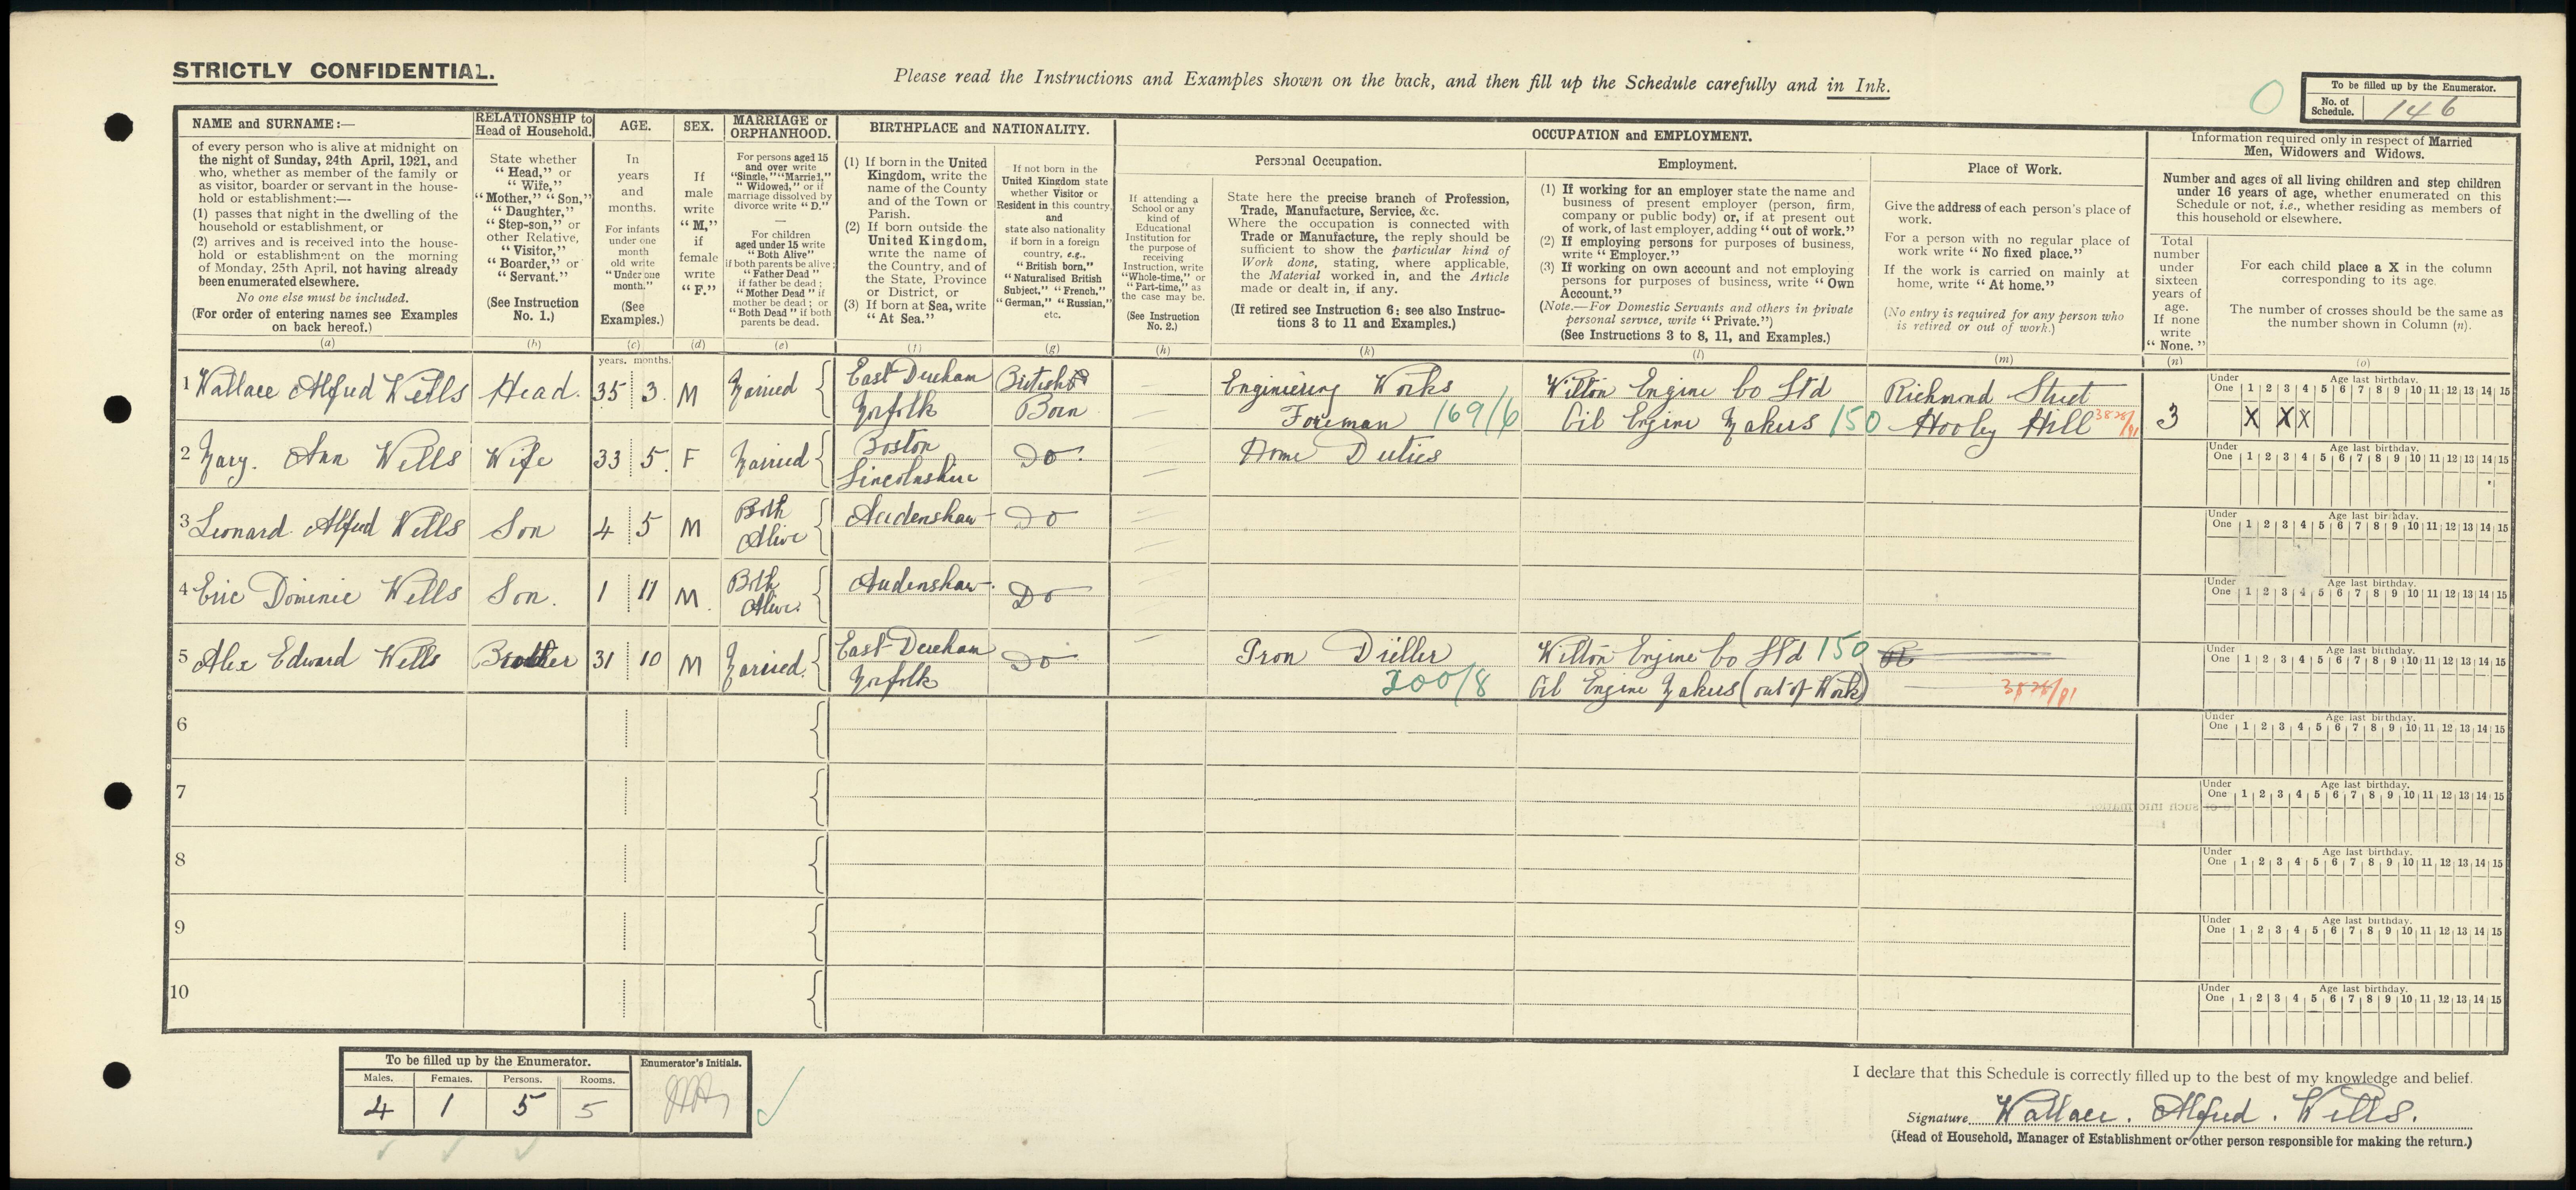 STRICTLY CONFIDENTIAL.
Please read the Instructions and Examples shown on the back, and then fill up the Schedule carefully and in Ink.
To be filled up by the Enumerator.
No. of Schedule. 146
NAME and SURNAME:—
of every person who is alive at midnight on
the night of Sunday, 24th April, 1921, and
who, whether as member of the family or
as visitor, boarder or servant in the house-
hold or establishment:—
(1) passes that night in the dwelling of the
household or establishment, or
(2) arrives and is received into the house-
hold or establishment on the morning
of Monday, 25th April, not having already
been enumerated elsewhere.
No one else must be included.
(For order of entering names see Examples
on back hereof.)
(a)
RELATIONSHIP to
Head of Household.
State whether
"Head," or
"Wife,"
"Mother," "Son,"
"Daughter,"
"Step-son," or
other Relative,
"Visitor,"
"Boarder," or
"Servant."
(See Instruction
No. 1.)
(b)
AGE.
In
years
and
months.
For infants
under one
month
old write
"Under one
month."
(See
Examples.)
(c)
years. months.
SEX.
If
male
write
"M,"
if
female
write
"F."
(d)
MARRIAGE or
ORPHANHOOD.
For persons aged 15
and over write
"Single," "Married,"
"Widowed," or if
marriage dissolved by
divorce write "D."
—
For children
aged under 15 write
"Both Alive"
if both parents be alive;
"Father Dead"
if father be dead;
"Mother Dead" if
mother be dead; or
"Both Dead" if both
parents be dead.
(e)
BIRTHPLACE and NATIONALITY.
(1) If born in the United
Kingdom, write the
name of the County
and of the Town or
Parish.
(2) If born outside the
United Kingdom,
write the name of
the Country, and of
the State, Province
or District, or
(3) If born at Sea, write
"At Sea."
(f)
If not born in the
United Kingdom state
whether Visitor or
Resident in this country,
and
state also nationality
if born in a foreign
country, e.g.,
"British born,"
"Naturalised British
Subject," "French,"
"German," "Russian,"
etc.
(g)
OCCUPATION and EMPLOYMENT.
Personal Occupation.
If attending a
School or any
kind of
Educational
Institution for
the purpose of
receiving
Instruction, write
"Whole-time," or
"Part-time," as
the case may be.
(See Instruction
No. 2.)
(h)
State here the precise branch of Profession,
Trade, Manufacture, Service, &c.
Where the occupation is connected with
Trade or Manufacture, the reply should be
sufficient to show the particular kind of
Work done, stating, where applicable,
the Material worked in, and the Article
made or dealt in, if any.
(If retired see Instruction 6; see also Instruc-
tions 3 to 11 and Examples.)
(k)
Employment.
(1) If working for an employer state the name and
business of present employer (person, firm,
company or public body) or, if at present out
of work, of last employer, adding "out of work."
(2) If employing persons for purposes of business,
write "Employer."
(3) If working on own account and not employing
persons for purposes of business, write "Own
Account."
(Note.—For Domestic Servants and others in private
personal service, write "Private.")
(See Instructions 3 to 8, 11, and Examples.)
(l)
Place of Work.
Give the address of each person's place of
work.
For a person with no regular place of
work write "No fixed place."
If the work is carried on mainly at
home, write "At home."
(No entry is required for any person who
is retired or out of work.)
(m)
Information required only in respect of Married
Men, Widowers and Widows.
Number and ages of all living children and step children
under 16 years of age, whether enumerated on this
Schedule or not, i.e., whether residing as members of
this household or elsewhere.
Total
number
under
sixteen
years of
age.
If none
write
"None."
(n)
For each child place a X in the column
corresponding to its age.
The number of crosses should be the same as
the number shown in Column (n).
(o)
1 Wallace Alfred Wells Head. 35 3. M Married East Dereham British
Norfolk Born
Engineering Works Wilton Engine Co Ltd Richmond Street
Foreman 169/6 Oil Engine Makers 150 Hooley Hill 3828/91 3
Under One 1 2 3 4 5 6 7 8 9 10 11 12 13 14 15
Age last birthday.
X X X
2 Mary. Ann Wells Wife 33 5. F Married Boston Do. Home Duties
Lincolnshire
Under One 1 2 3 4 5 6 7 8 9 10 11 12 13 14 15
Age last birthday.
3 Leonard Alfred Wells Son 4 5 M Both Audenshaw Do
Alive
Under One 1 2 3 4 5 6 7 8 9 10 11 12 13 14 15
Age last birthday.
4 Eric Dominic Wells Son. 1 11 M. Both Audenshaw. Do
Alive.
Under One 1 2 3 4 5 6 7 8 9 10 11 12 13 14 15
Age last birthday.
5 Alex Edward Wells Brother 31 10 M Married. East Dereham Do Iron Driller Wilton Engine Co Ltd 150
Norfolk 200/8 Oil Engine Makers (out of Work) 3828/91
Under One 1 2 3 4 5 6 7 8 9 10 11 12 13 14 15
Age last birthday.
6
Under One 1 2 3 4 5 6 7 8 9 10 11 12 13 14 15
Age last birthday.
7
Under One 1 2 3 4 5 6 7 8 9 10 11 12 13 14 15
Age last birthday.
8
Under One 1 2 3 4 5 6 7 8 9 10 11 12 13 14 15
Age last birthday.
9
Under One 1 2 3 4 5 6 7 8 9 10 11 12 13 14 15
Age last birthday.
10
Under One 1 2 3 4 5 6 7 8 9 10 11 12 13 14 15
Age last birthday.
To be filled up by the Enumerator.
Enumerator's Initials.
Males. Females. Persons. Rooms.
4 1 5 5
I declare that this Schedule is correctly filled up to the best of my knowledge and belief.
Signature Wallace. Alfred. Wells.
(Head of Household, Manager of Establishment or other person responsible for making the return.)